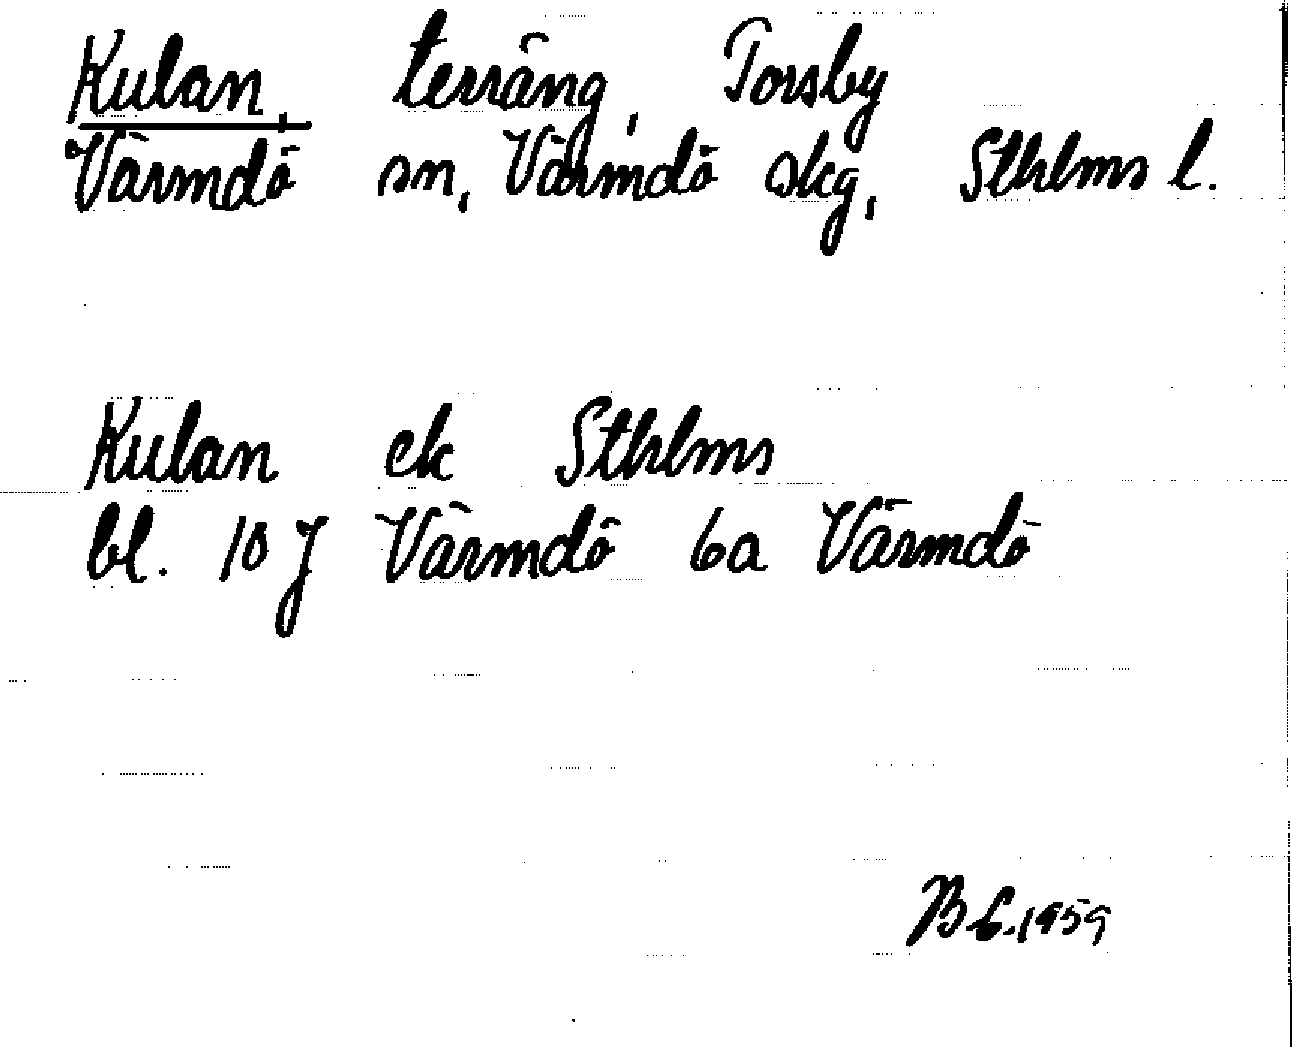 Kulan, terräng, Torsby
Värmdö sn, Värmdö skg, Sthlms l.
Kulan ek Sthlms
bl. 10 J Värmdö 6a Värmdö
1959